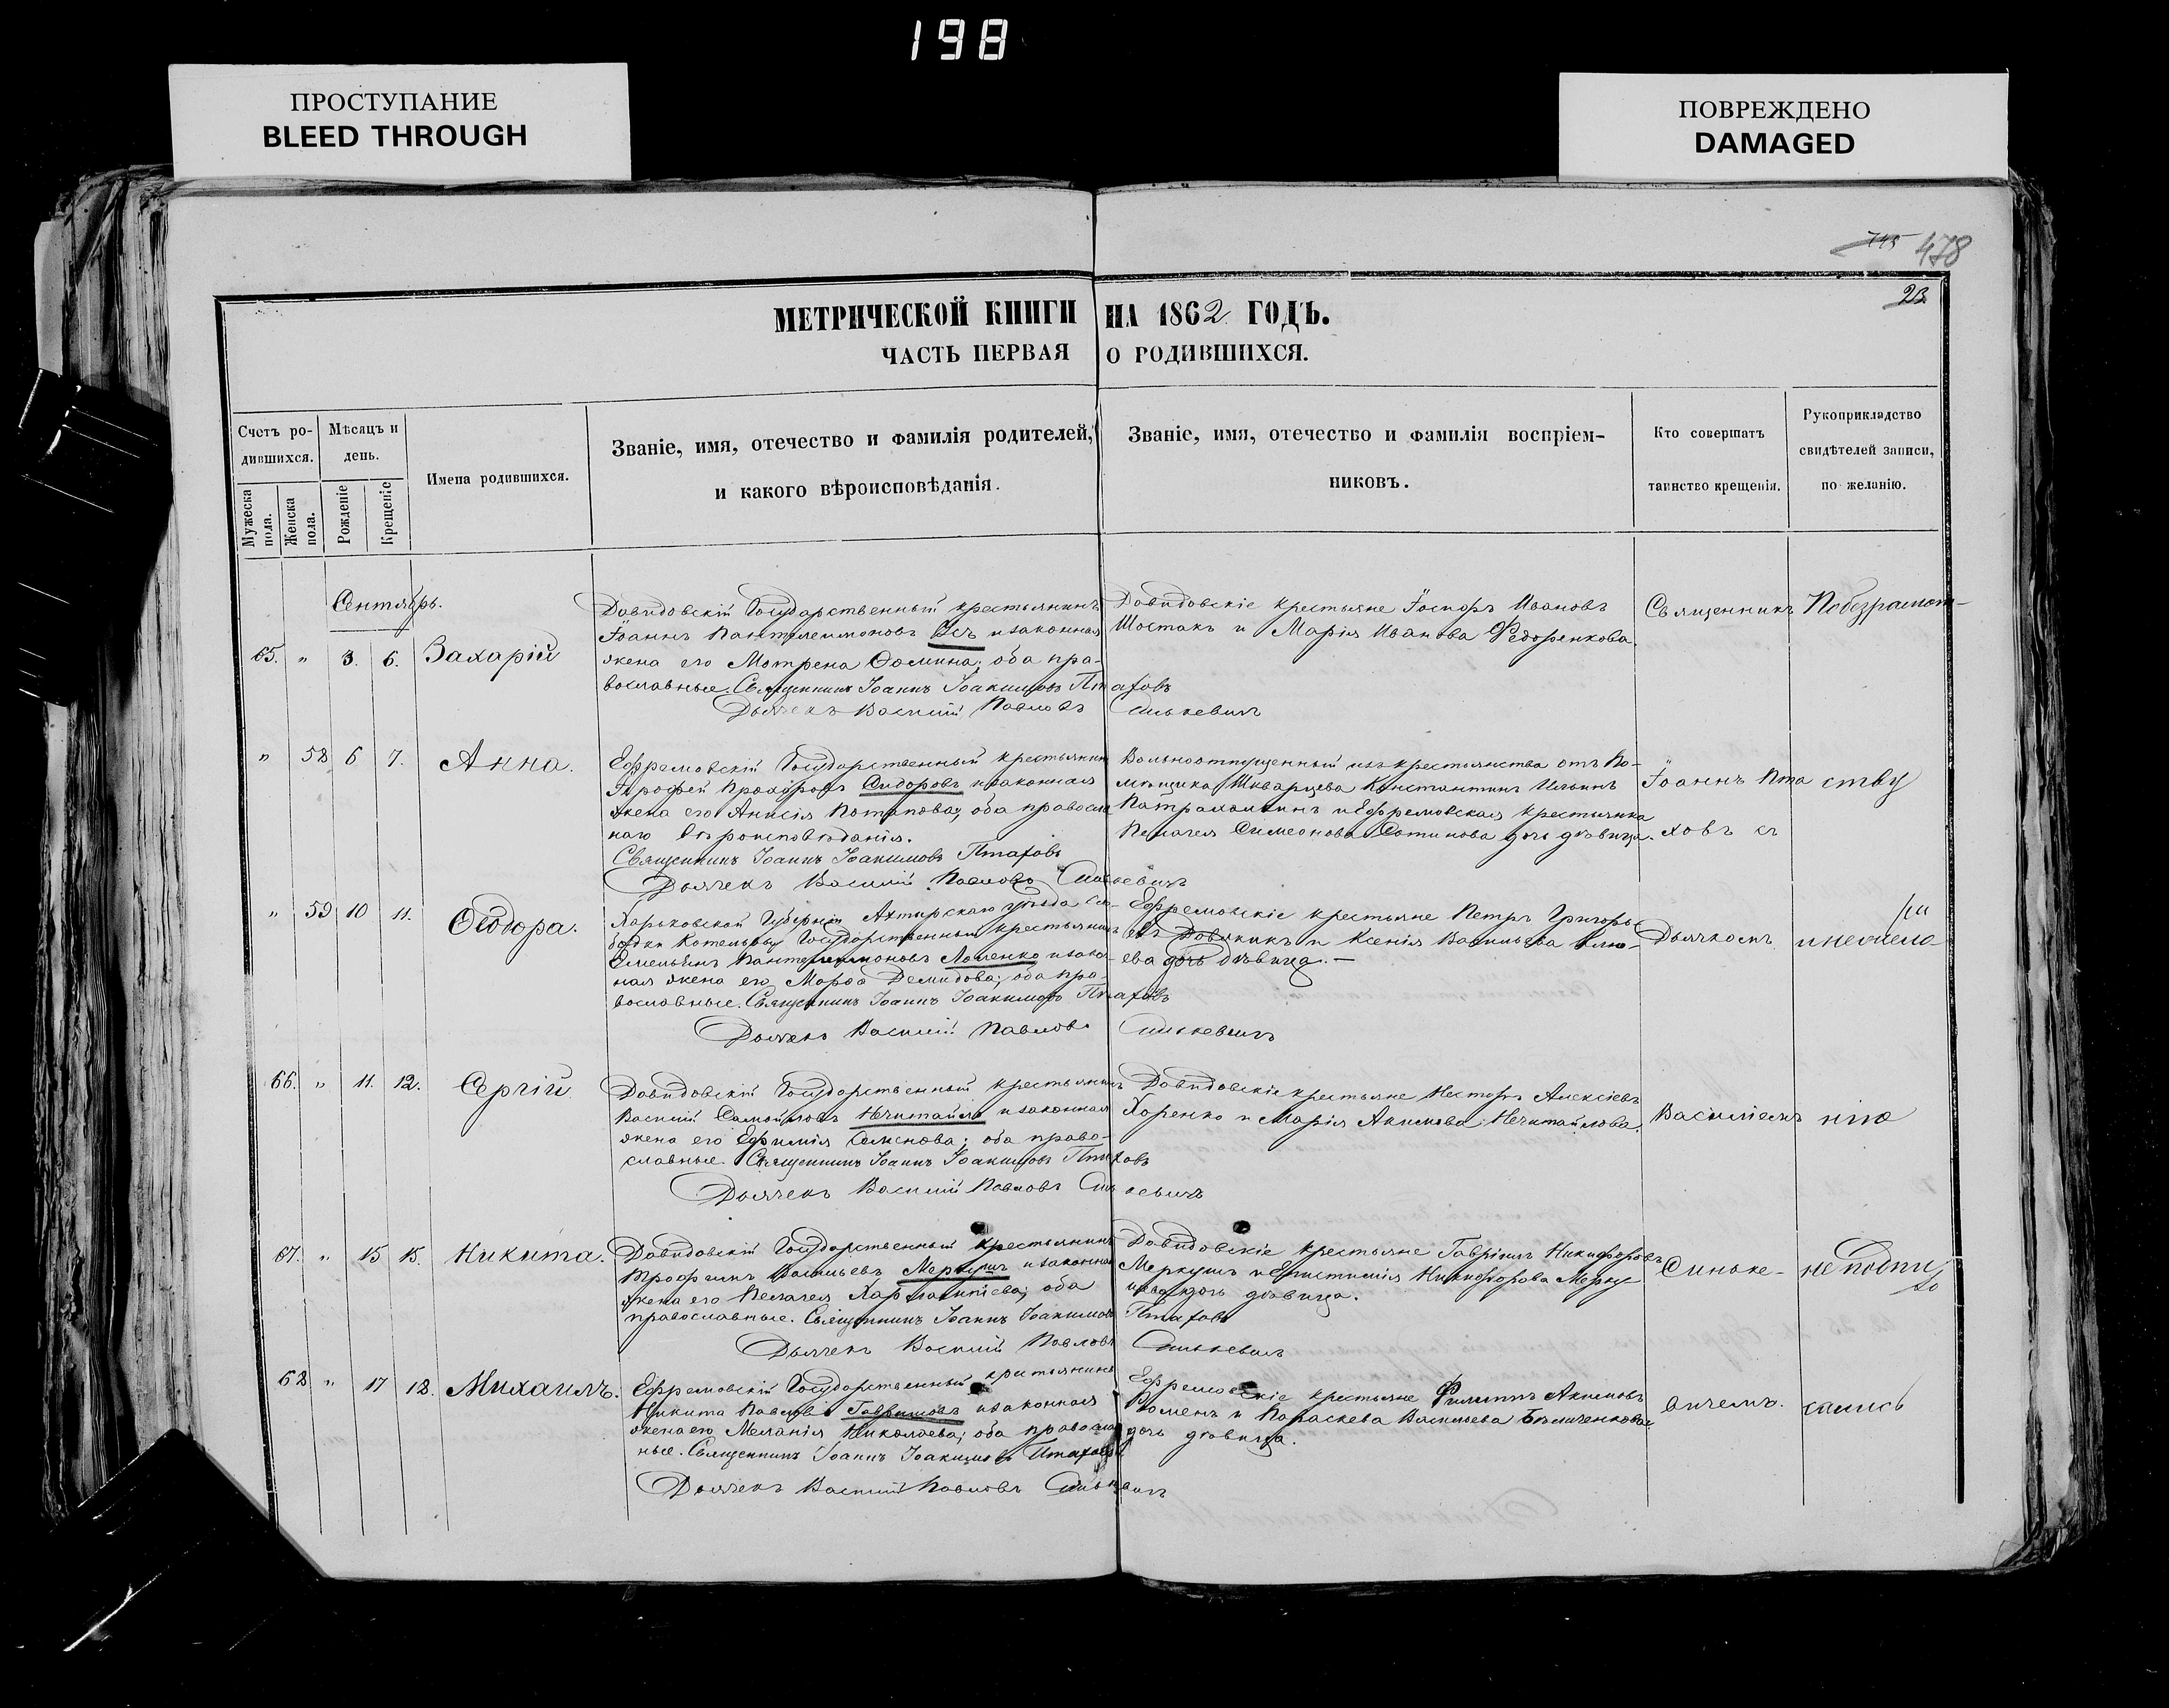 198
ПРОСТУПАНИЕ
BLEED THROUGH
ПОВРЕЖДЕНО
DAMAGED
745 478
23.
МЕТРИЧЕСКОЙ КНИГИ НА 1862 ГОДЪ.
ЧАСТЬ ПЕРВАЯ О РОДИВШИХСЯ.
Счетъ ро-
дившихся.
Мужеска
пола.
Женска
пола.
Мѣсяцъ и
день.
Рожденіе
Крещеніе
Имена родившихся.
Званіе, имя, отечество и фамилія родителей,
и какого вѣроисповѣданія.
Званіе, имя, отечество и фамилія воспріем-
никовъ.
Кто совершатъ
таинство крещенія.
Рукоприкладство
свидѣтелей записи,
по желанію.
Сентябрь.
65. " 3. 6. Захарій
Давидовскій Государственный крестьянинъ
Іоаннъ Пантелеимоновъ и законная
жена его Мотрена Фомина; оба пра-
вославные. Священникъ Іоаннъ Іоакимовъ Птаховъ
Дьячекъ Василій Павловъ Синькевичъ
Давидовскіе крестьяне Іосифъ Ивановъ
Шостакъ и Марія Иванова Федоренкова.
Священникъ
По безграмот-
" 58 6 7. Анна.
Ефремовскій Государственный крестьянинъ
Прохоровъ Сидоровъ и законная
жена его Анисія Потапова; оба правосла
наго вѣроисповѣданія.
Священникъ Іоаннъ Іоакимовъ Птаховъ
Дьячекъ Василій Павловъ Синькевичъ
Вольноотпущенный изъ крестьянства отъ По-
мѣщика Шварцева Константинъ Ильинъ
и Ефремовская крестьянка
Пелагея Симеонова Сотникова дочь дѣвица.
Іоаннъ Пта
ховъ съ
ству
" 59 10 11. Ѳеодора.
Харьковской Губерніи Ахтырскаго уѣзда Сло-
бодки Котельвы Государственный крестьянинъ
Емельянъ Пантелеимоновъ Ломенко и закон-
ная жена его Марѳа Демидова; оба пра-
вославные. Священникъ Іоаннъ Іоакимовъ Птаховъ
Дьячекъ Василій Павловъ Синькевичъ
Ефремовскіе крестьяне Петръ Григорь-
евъ Довжикъ и Ксенія Васильева
ева дочь дѣвица. —
Дьячкомъ
и неумѣ
66. " 11. 12. Сергій
Давидовскій Государственный крестьянинъ
Василій Самойловъ Нечитайло и законная
жена его Ефимія Семенова; оба право-
славные. Священникъ Іоаннъ Іоакимовъ Птаховъ
Дьячекъ Василій Павловъ Синькевичъ
Давидовскіе крестьяне Несторъ Алексіевъ
Хоренко и Марія Акимова Нечитайлова.
Василіемъ
нію
67. " 15 15. Никита.
Давидовскій Государственный крестьянинъ
Трофимъ Васильевъ Меркушъ и законная
жена его Пелагея Харлампіева; оба
православные. Священникъ Іоаннъ Іоакимовъ Птаховъ
Дьячекъ Василій Павловъ Синькевичъ
Давидовскіе крестьяне Гавріилъ Никифоровъ
Меркушъ и Епистимія Никифорова Мерку
шева дочь дѣвица.
Синьке-
не подпи
68 " 17 18. Михаилъ.
Ефремовскій Государственный крестьянинъ
Никита Павловъ Гавриловъ и законная
жена его Меланія Николаева; оба правосла
ные. Священникъ Іоаннъ Іоакимовъ Птаховъ
Дьячекъ Василій Павловъ Синькевичъ
Ефремовскіе крестьяне Филиппъ Акимовъ
Роменъ и Параскева Васильева Бѣличенкова
дочь дѣвица.
вичемъ.
сались